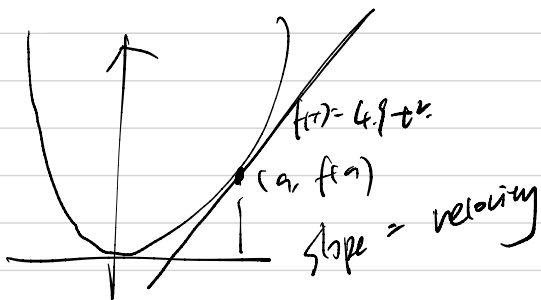 f(t) = 4.9 t².
(a, f(a)
slope = velocity